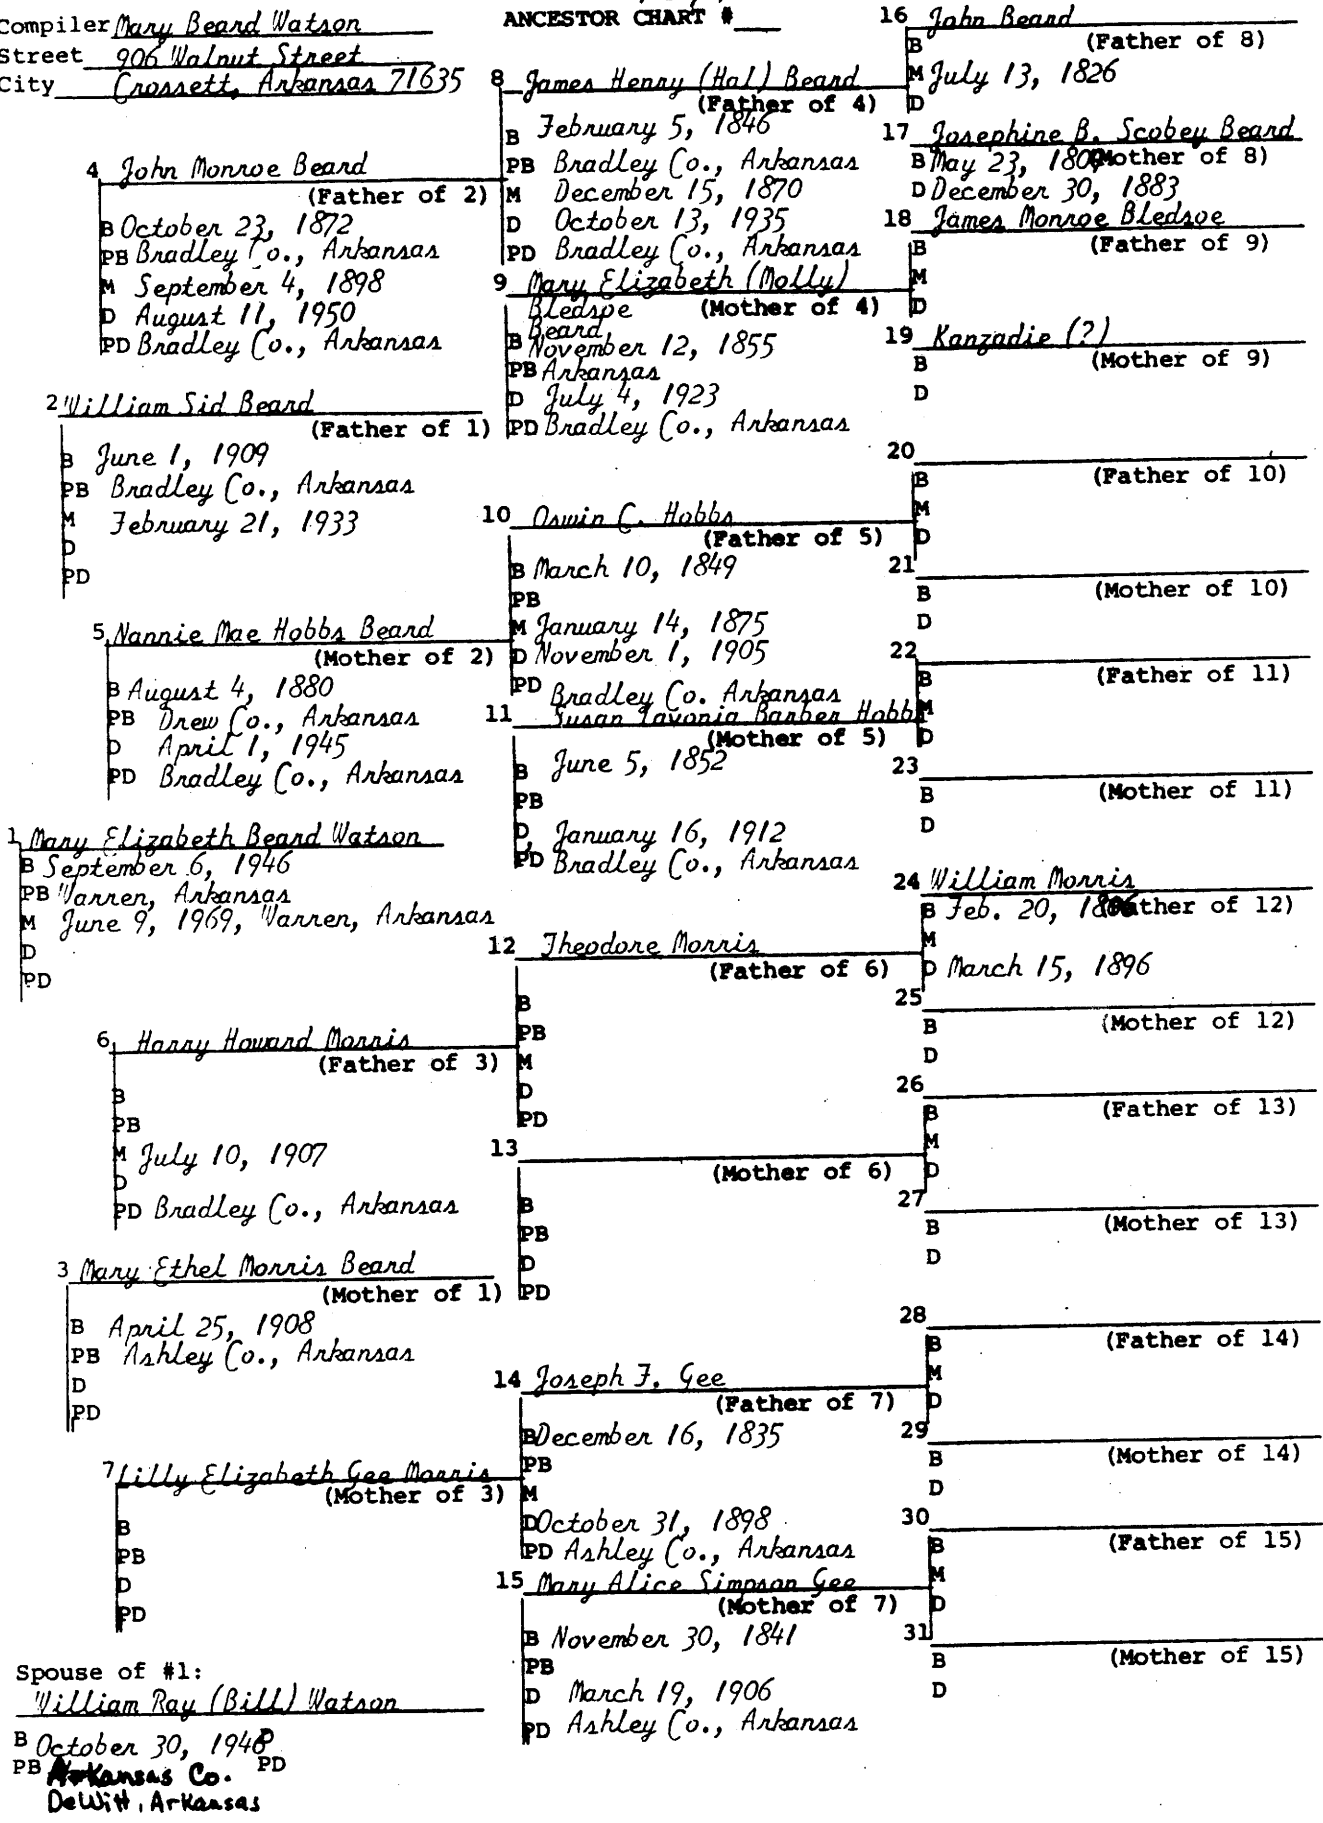 Compiler Mary Beard Watson
Street 906 Walnut Street
City Crossett, Arkansas 71635
ANCESTOR CHART #
1 Mary Elizabeth Beard Watson
B September 6, 1946
PB Warren, Arkansas
M June 9, 1969, Warren, Arkansas
D
PD
2 William Sid Beard
(Father of 1)
B June 1, 1909
PB Bradley Co., Arkansas
M February 21, 1933
D
PD
3 Mary Ethel Morris Beard
(Mother of 1)
B April 25, 1908
PB Ashley Co., Arkansas
D
PD
4 John Monroe Beard
(Father of 2)
B October 23, 1872
PB Bradley Co., Arkansas
M September 4, 1898
D August 11, 1950
PD Bradley Co., Arkansas
5 Nannie Mae Hobbs Beard
(Mother of 2)
B August 4, 1880
PB Drew Co., Arkansas
D April 1, 1945
PD Bradley Co., Arkansas
6 Harry Howard Morris
(Father of 3)
B
PB
M July 10, 1907
D
PD Bradley Co., Arkansas
7 Lilly Elizabeth Gee Morris
(Mother of 3)
B
PB
D
PD
Spouse of #1:
William Ray (Bill) Watson
B October 30, 1948
D
PB Arkansas Co.
PD
DeWitt, Arkansas
8 James Henry (Hal) Beard
(Father of 4)
B February 5, 1846
PB Bradley Co., Arkansas
M December 15, 1870
D October 13, 1935
PD Bradley Co., Arkansas
9 Mary Elizabeth (Molly)
(Mother of 4)
Bledsoe
Beard
B November 12, 1855
PB Arkansas
D July 4, 1923
PD Bradley Co., Arkansas
10 Oswin C. Hobbs
(Father of 5)
B March 10, 1849
PB
M January 14, 1875
D November 1, 1905
PD Bradley Co. Arkansas
11 Susan Lavonia Barber Hobbs
(Mother of 5)
B June 5, 1852
PB
D January 16, 1912
PD Bradley Co., Arkansas
12 Theodore Morris
(Father of 6)
B
PB
M
D
PD
13
(Mother of 6)
B
PB
D
PD
14 Joseph F. Gee
(Father of 7)
B December 16, 1835
PB
M
D October 31, 1898
PD Ashley Co., Arkansas
15 Mary Alice Simpson Gee
(Mother of 7)
B November 30, 1841
PB
D March 19, 1906
PD Ashley Co., Arkansas
16 John Beard
(Father of 8)
B
M July 13, 1826
D
17 Josephine B. Scobey Beard
(Mother of 8)
B May 23, 1809
D December 30, 1883
18 James Monroe Bledsoe
(Father of 9)
B
M
D
19 Kanzadie (?)
(Mother of 9)
B
D
20
(Father of 10)
B
M
D
21
(Mother of 10)
B
D
22
(Father of 11)
B
M
D
23
(Mother of 11)
B
D
24 William Morris
(Father of 12)
B Feb. 20,
M
D March 15, 1896
25
(Mother of 12)
B
D
26
(Father of 13)
B
M
D
27
(Mother of 13)
B
D
28
(Father of 14)
B
M
D
29
(Mother of 14)
B
D
30
(Father of 15)
B
M
D
31
(Mother of 15)
B
D